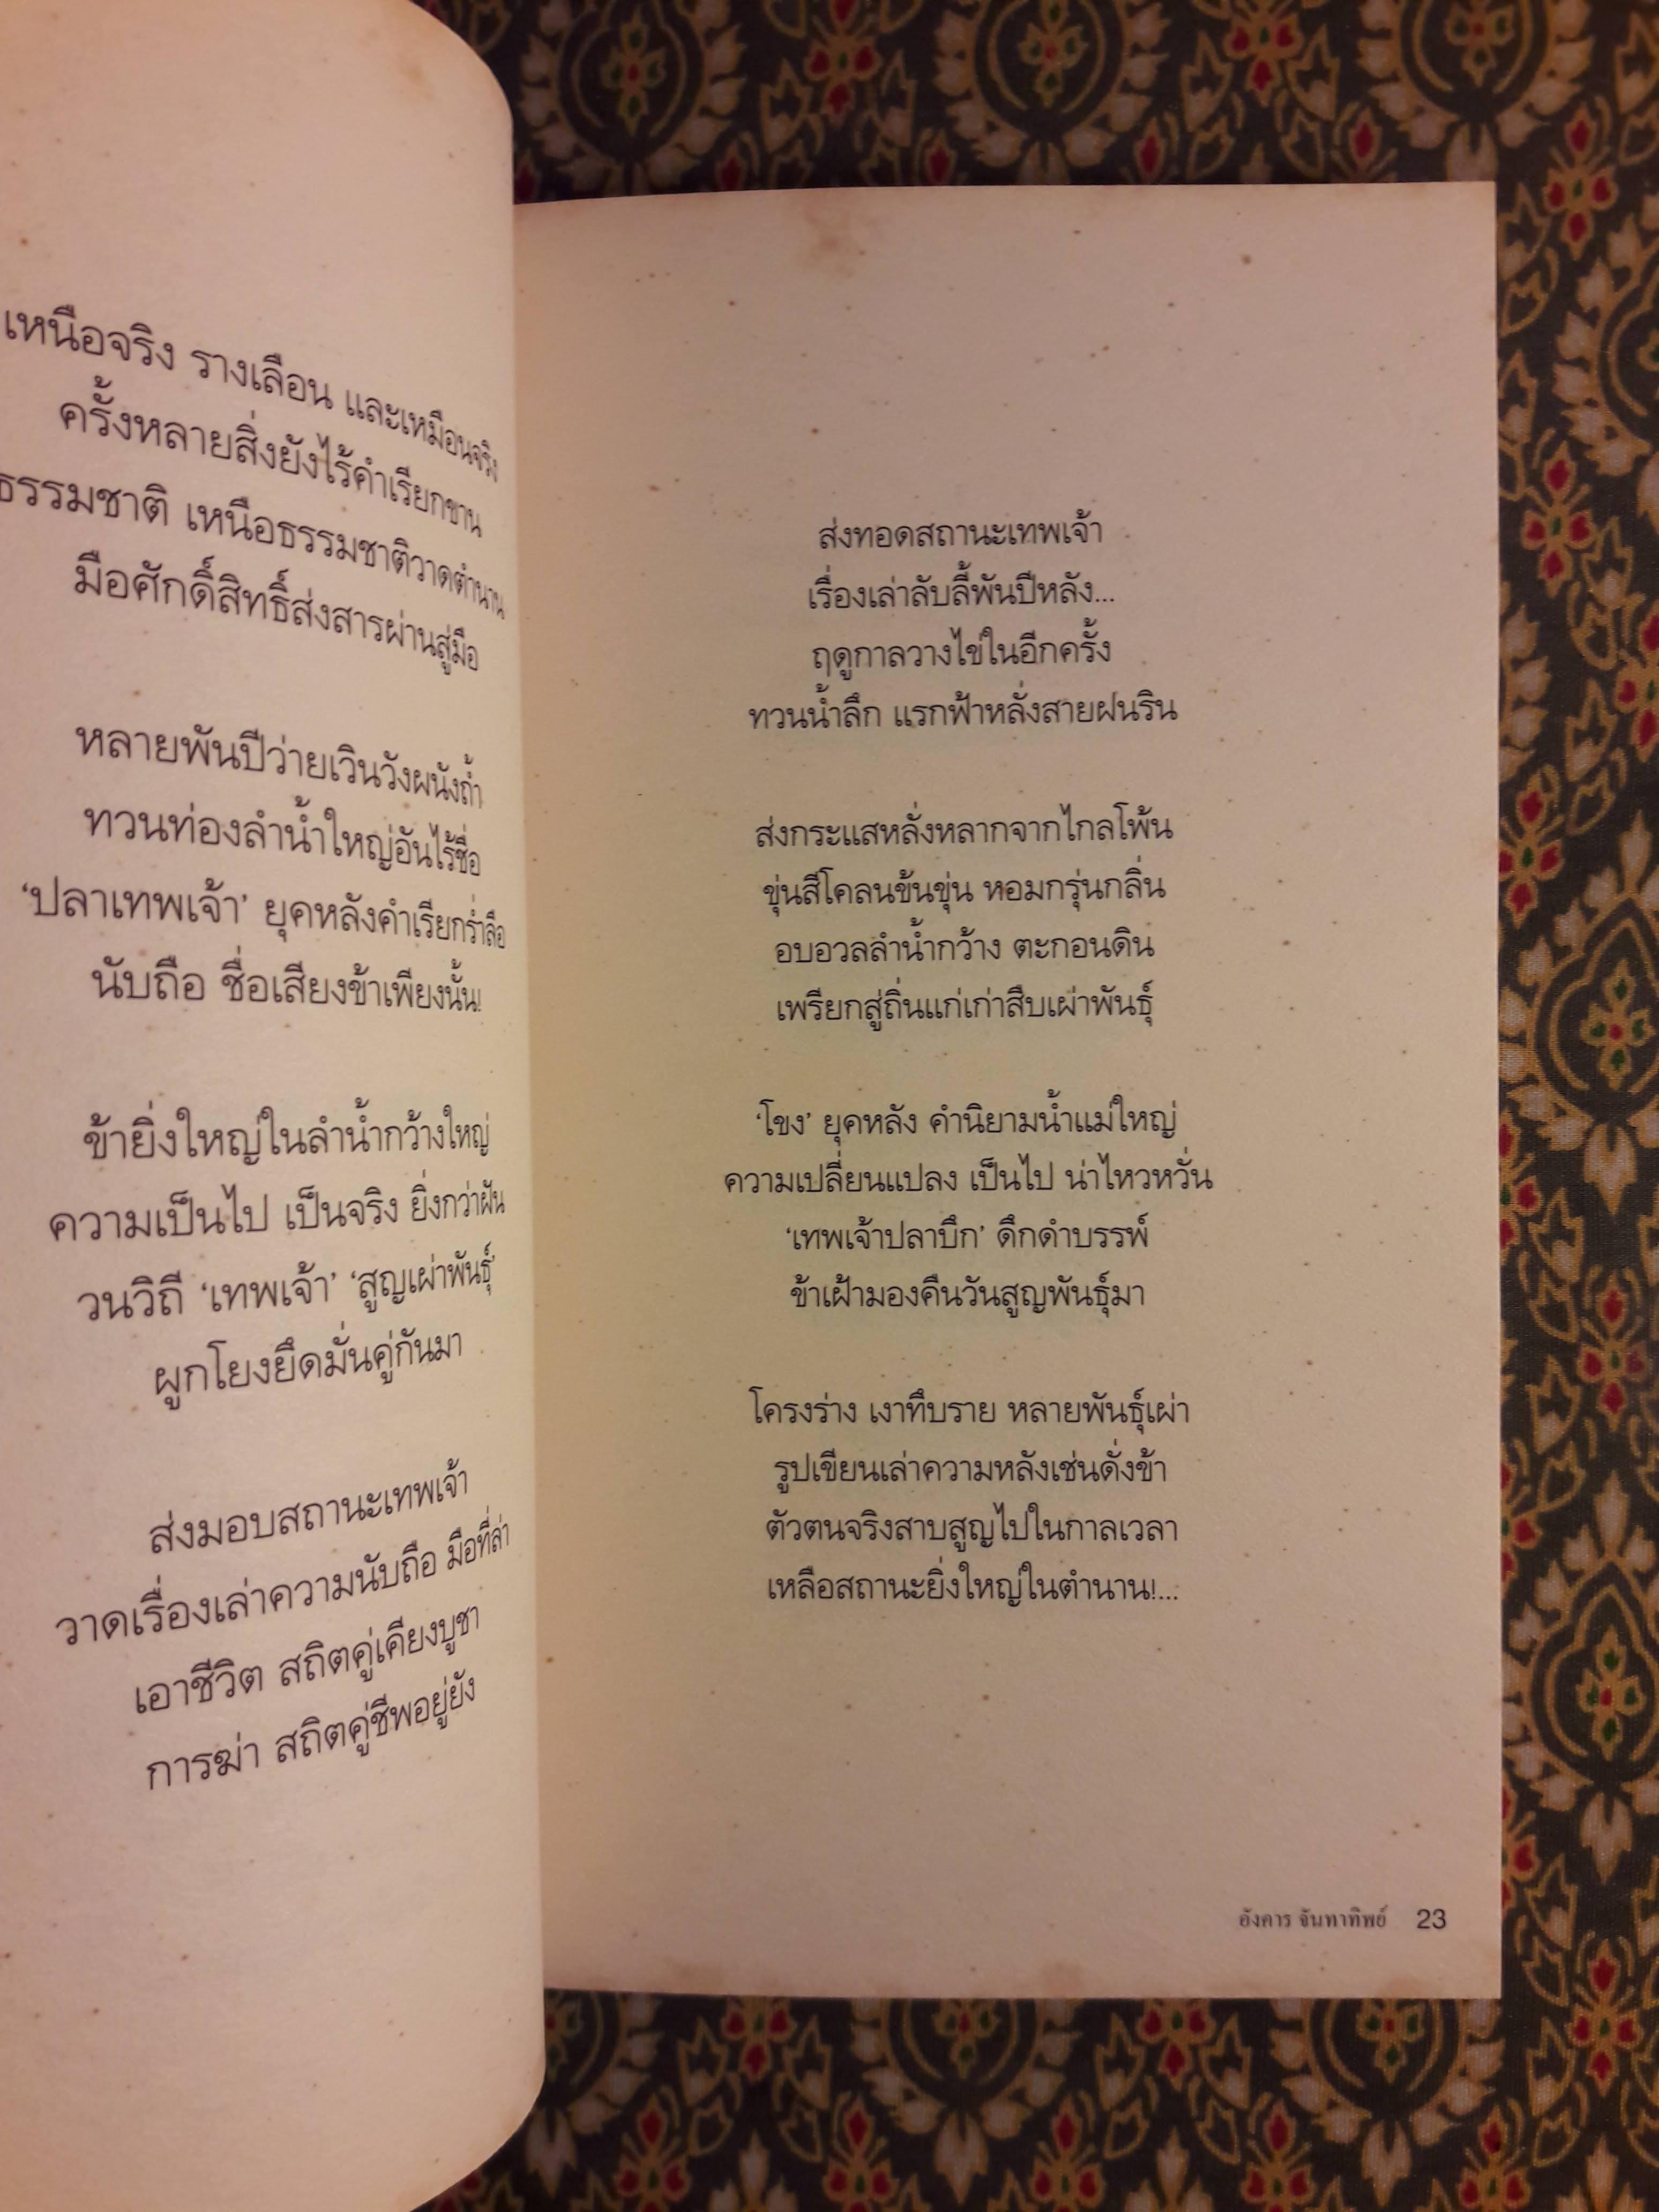 เหนือจริง รางเลือน และเหมือนจริง
ครั้งหลายสิ่งยังไร้คำเรียกขาน
ธรรมชาติ เหนือธรรมชาติวาดตำนาน
มือศักดิ์สิทธิ์ส่งสารผ่านสู่มือ
หลายพันปีว่ายเวินวังผนังถ้ำ
ทวนท่องลำน้ำใหญ่อันไร้ชื่อ
‘ปลาเทพเจ้า’ ยุคหลังคำเรียกร่ำลือ
นับถือ ชื่อเสียงข้าเพียงนั้น!
ข้ายิ่งใหญ่ในลำน้ำกว้างใหญ่
ความเป็นไป เป็นจริง ยิ่งกว่าฝัน
วนวิถี ‘เทพเจ้า’ ‘สูญเผ่าพันธุ์’
ผูกโยงยึดมั่นคู่กันมา
ส่งมอบสถานะเทพเจ้า
วาดเรื่องเล่าความนับถือ มือที่ล่า
เอาชีวิต สถิตคู่เคียงบูชา
การฆ่า สถิตคู่ชีพอยู่ยัง
ส่งทอดสถานะเทพเจ้า
เรื่องเล่าลับลี้พันปีหลัง...
ฤดูกาลวางไข่ในอีกครั้ง
ทวนน้ำลึก แรกฟ้าหลั่งสายฝนริน
ส่งกระแสหลั่งหลากจากไกลโพ้น
ขุ่นสีโคลนข้นขุ่น หอมกรุ่นกลิ่น
อบอวลลำน้ำกว้าง ตะกอนดิน
เพรียกสู่ถิ่นแก่เก่าสืบเผ่าพันธุ์
‘โขง’ ยุคหลัง คำนิยามน้ำแม่ใหญ่
ความเปลี่ยนแปลง เป็นไป น่าไหวหวั่น
‘เทพเจ้าปลาบึก’ ดึกดำบรรพ์
ข้าเฝ้ามองคืนวันสูญพันธุ์มา
โครงร่าง เงาทึบราย หลายพันธุ์เผ่า
รูปเขียนเล่าความหลังเช่นดั่งข้า
ตัวตนจริงสาบสูญไปในกาลเวลา
เหลือสถานะยิ่งใหญ่ในตำนาน!...
อังคาร จันทาทิพย์ 23